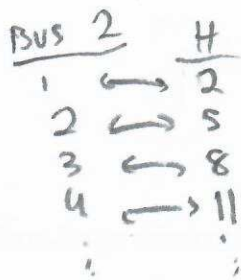 BUS 2 H
1 ↔ 2
2 ↔ 5
3 ↔ 8
4 ↔ 11
⋮ ⋮